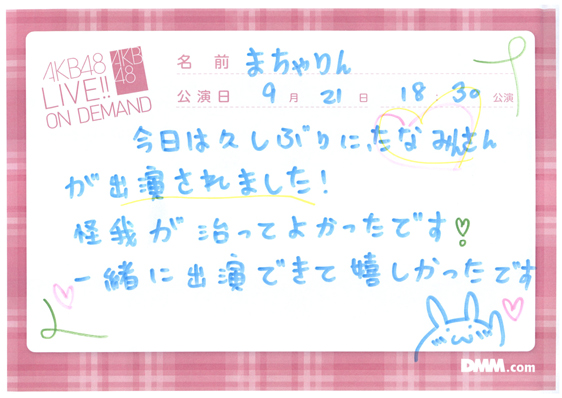 AKB48
LIVE!!
ON DEMAND
AKB
48
名前 まちゃりん
公演日 9月21日 18:30公演
今日は久しぶりに、たなみんさん
が出演されました!
怪我が治ってよかったです
一緒に出演できて嬉しかったです
DMM.com